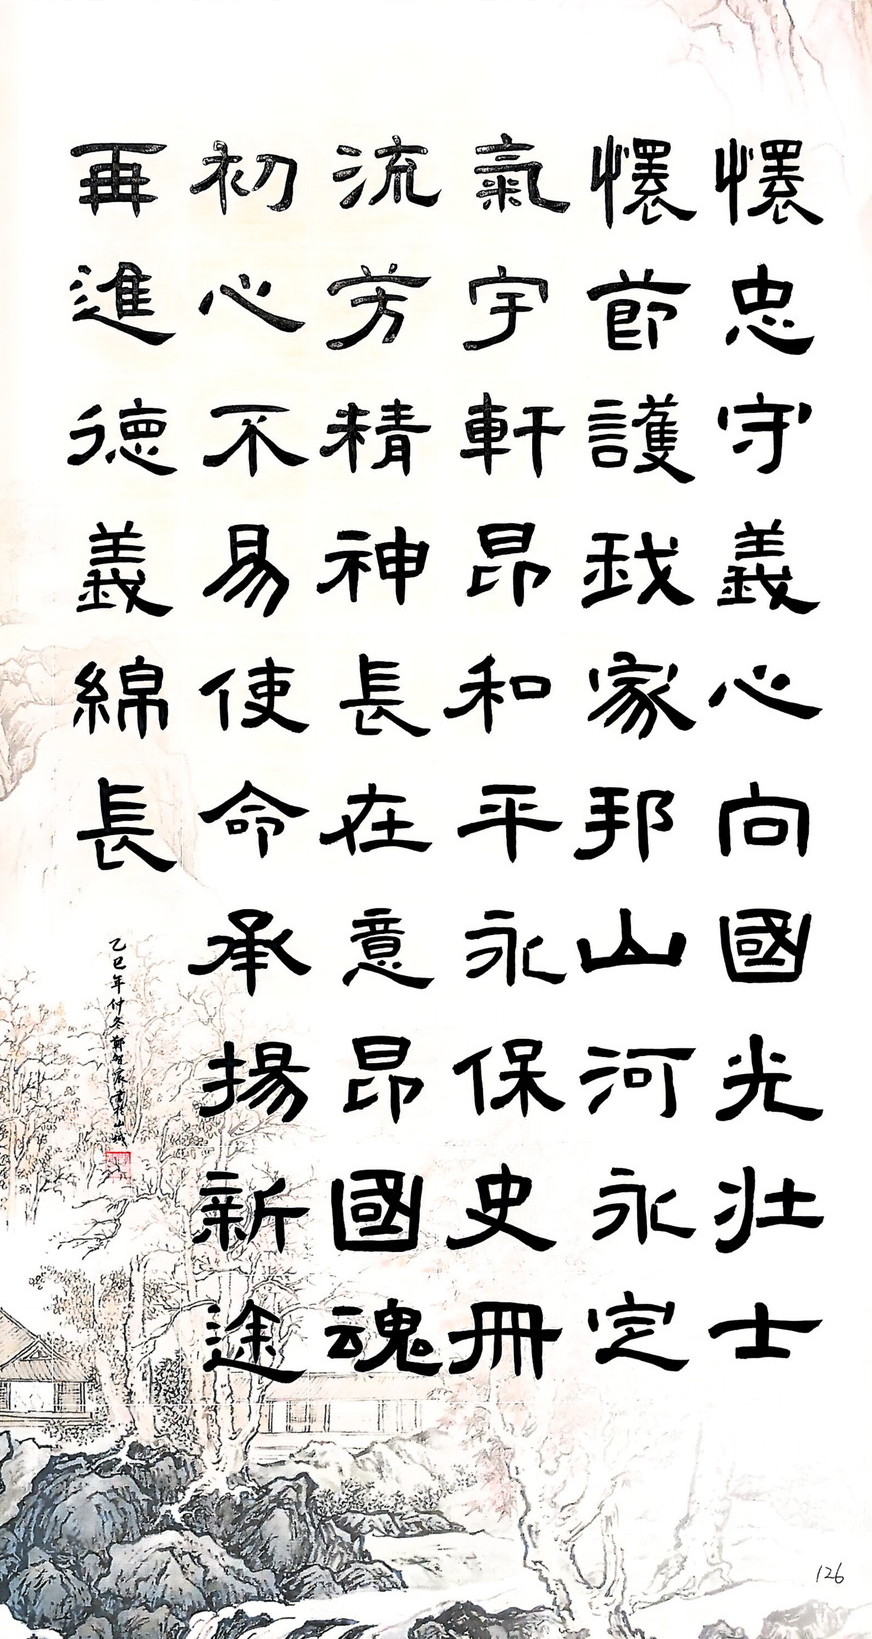 懷忠守義心向國光壯士
懷節護我家邦山河永定
氣宇軒昂和平永保史冊
流芳精神長在意昂國魂
初心不易使命承揚新途
再進德義綿長
乙巳年仲冬書於山城
126